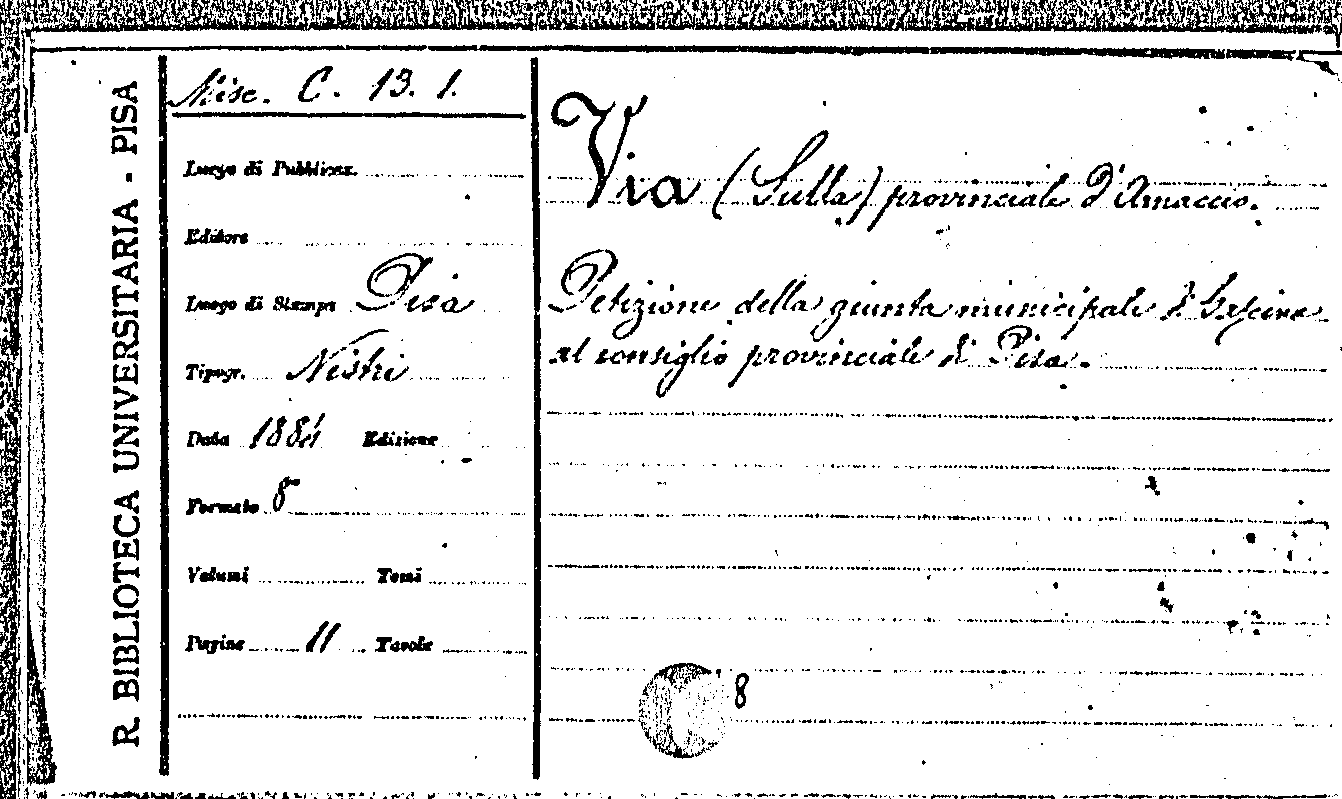 R. BIBLIOTECA UNIVERSITARIA - PISA
Misc. C. 13. 1.
Luogo di Pubblicaz.
Editore
Luogo di Stampa Pisa
Tipogr. Nistri
Data 1884 Edizione
Formato 8°
Volumi Tomi
Pagine 11 Tavole
Via (Sulla) provinciale d'Arnaccio.
Petizione della giunta municipale di Cascina
al consiglio provinciale di Pisa.
8